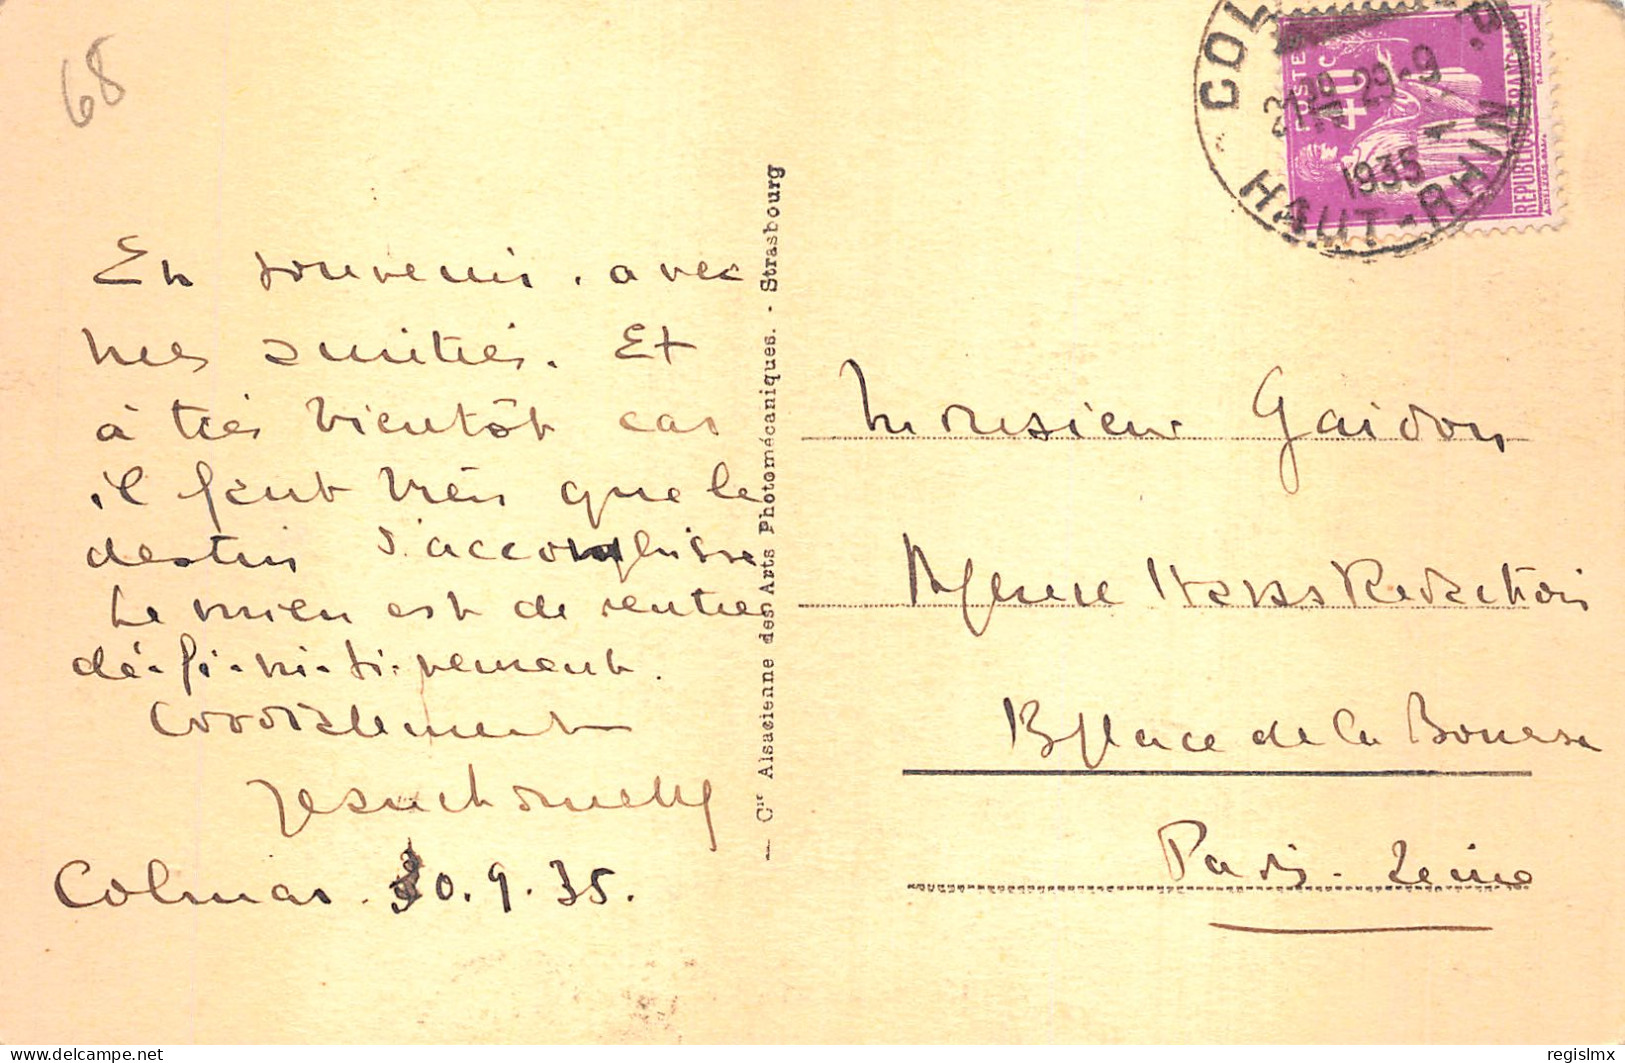 68
En souvenir. avec
mes amitiés. Et
à très bientôt car
il faut bien que le
destin s'accomplisse
Le mien est de rentrer
dé-fi-ni-ti-vement.
Cordialement
Colmar. 30.9.35.
— Cie Alsacienne des Arts Photomécaniques. - Strasbourg
COL
HAUT-RHIN
29-9
1935
POSTES
40c
REPUBLIQUE FRANCAISE
Monsieur Gaidon
Agence Havas Redaction
13 place de la Bourse
Paris. Seine
delcampe.net
regislmx